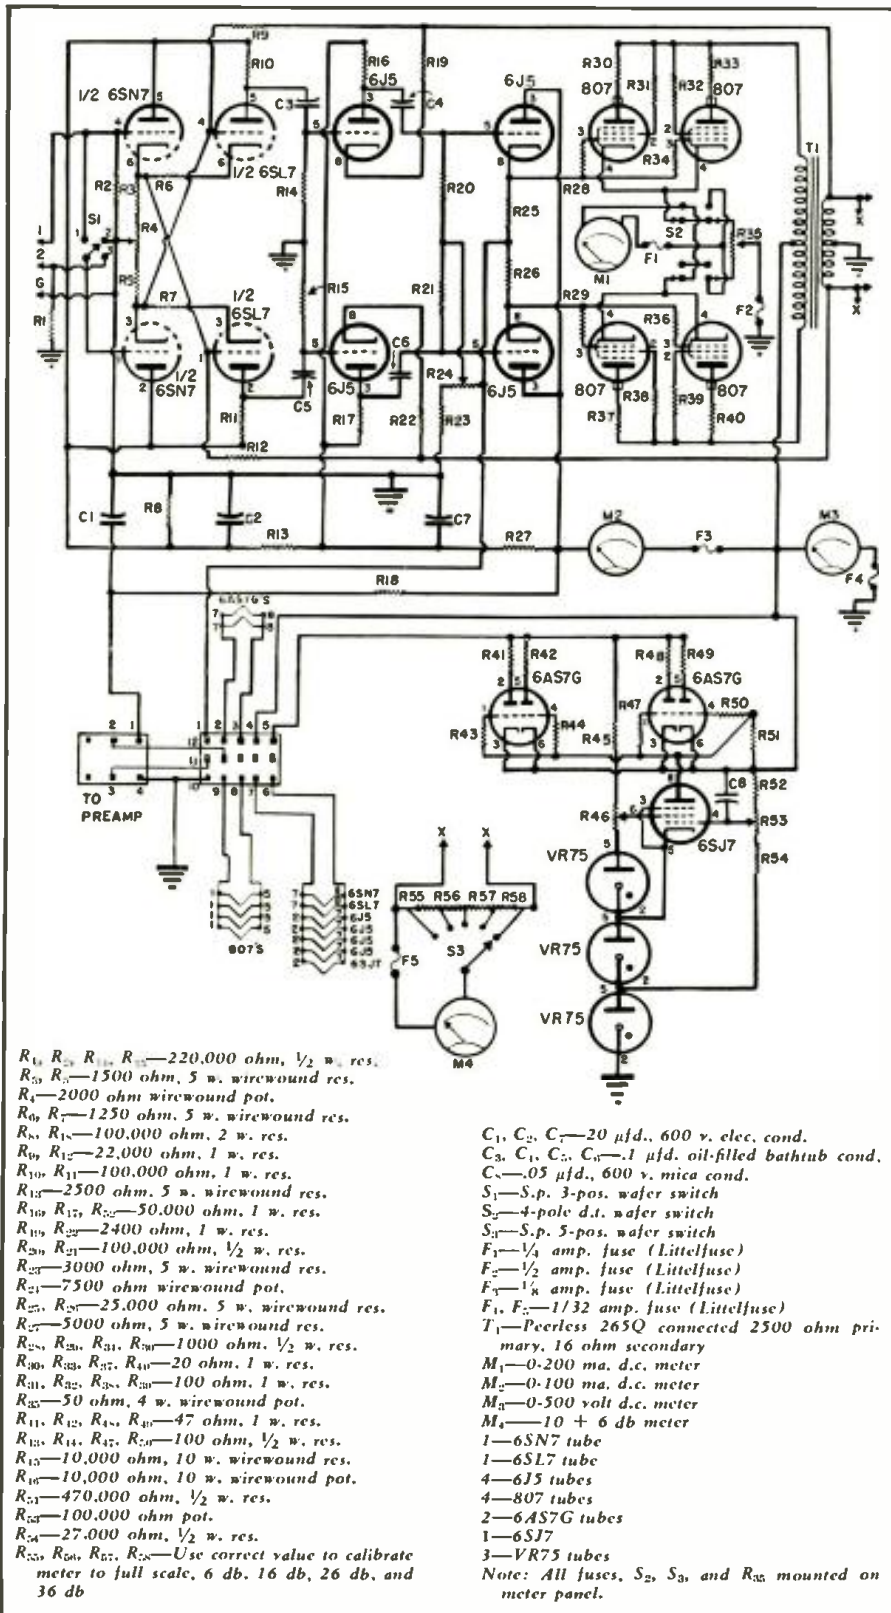 R9
R10
R16
R19
R30
R33
6J5
6J5
807
R31
R32
807
1/2 6SN7
5
5
3
C3
C4
3
T1
4
4
5
5
3
2
2
3
6
6
1/2 6SL7
8
8
4
R34
4
R2
R3
R6
R14
R20
R28
S1
R4
R25
S2
R35
X
1
1
2
M1
F1
2
R5
R15
R21
R26
G
R7
1/2
6SL7
R29
R36
F2
R1
3
3
8
C6
8
4
4
X
1
1
5
R24
5
3
2
2
3
1/2
6SN7
2
2
C5
6J5
3
6J5
3
807
R38
807
R11
R17
R22
R23
R37
R39
R40
R12
C1
R8
C2
C7
M2
M3
R13
R27
F3
F4
R18
6AS7G'S
7
8
7
8
R41
R42
R48
R49
6AS7G
6AS7G
2
5
2
5
R47
R50
1
4
1
4
R43
R44
R45
R51
3
6
3
6
2
1
1
2
3
4
5
12
11
10
3
4
9
8
7
6
TO
PREAMP
C8
R52
8
R46
3
6
4
R53
5
6SJ7
R54
X
X
VR75
5
2
7
6SN7
7
6SL7
2
6J5
2
6J5
2
6J5
2
6J5
2
6SJ7
807'S
R55
R56
R57
R58
S3
F5
M4
VR75
5
2
VR75
5
2
R1, R2, R14, R15—220,000 ohm, ½ w. res.
R3, R5—1500 ohm, 5 w. wirewound res.
R4—2000 ohm wirewound pot.
R6, R7—1250 ohm, 5 w. wirewound res.
R8, R18—100,000 ohm, 2 w. res.
R9, R12—22,000 ohm, 1 w. res.
R10, R11—100,000 ohm, 1 w. res.
R13—2500 ohm, 5 w. wirewound res.
R16, R17, R52—50,000 ohm, 1 w. res.
R19, R22—2400 ohm, 1 w. res.
R20, R21—100,000 ohm, ½ w. res.
R23—3000 ohm, 5 w. wirewound res.
R24—7500 ohm wirewound pot.
R25, R26—25,000 ohm, 5 w. wirewound res.
R27—5000 ohm, 5 w. wirewound res.
R28, R29, R34, R36—1000 ohm, ½ w. res.
R30, R33, R37, R40—20 ohm, 1 w. res.
R31, R32, R38, R39—100 ohm, 1 w. res.
R35—50 ohm, 4 w. wirewound pot.
R41, R42, R48, R49—47 ohm, 1 w. res.
R43, R44, R47, R50—100 ohm, ½ w. res.
R45—10,000 ohm, 10 w. wirewound res.
R46—10,000 ohm, 10 w. wirewound pot.
R51—470,000 ohm, ½ w. res.
R53—100,000 ohm pot.
R54—27,000 ohm, ½ w. res.
R55, R56, R57, R58—Use correct value to calibrate
meter to full scale, 6 db, 16 db, 26 db, and
36 db
C1, C2, C7—20 μfd., 600 v. elec. cond.
C3, C4, C5, C6—.1 μfd. oil-filled bathtub cond.
C8—.05 μfd., 600 v. mica cond.
S1—S.p. 3-pos. wafer switch
S2—4-pole d.t. wafer switch
S3—S.p. 5-pos. wafer switch
F1—¼ amp. fuse (Littelfuse)
F2—½ amp. fuse (Littelfuse)
F3—⅛ amp. fuse (Littelfuse)
F4, F5—1/32 amp. fuse (Littelfuse)
T1—Peerless 265Q connected 2500 ohm pri-
mary, 16 ohm secondary
M1—0-200 ma. d.c. meter
M2—0-100 ma. d.c. meter
M3—0-500 volt d.c. meter
M4——10 + 6 db meter
1—6SN7 tube
1—6SL7 tube
4—6J5 tubes
4—807 tubes
2—6AS7G tubes
1—6SJ7
3—VR75 tubes
Note: All fuses, S2, S3, and R35 mounted on
meter panel.